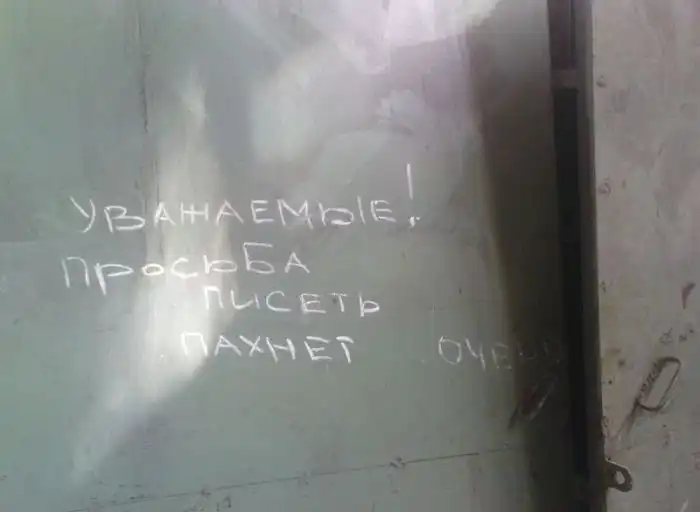 УВАЖАЕМЫЕ!
ПРОСЬБА
ПИСЕТЬ
ПАХНЕТ ОЧЕНЬ